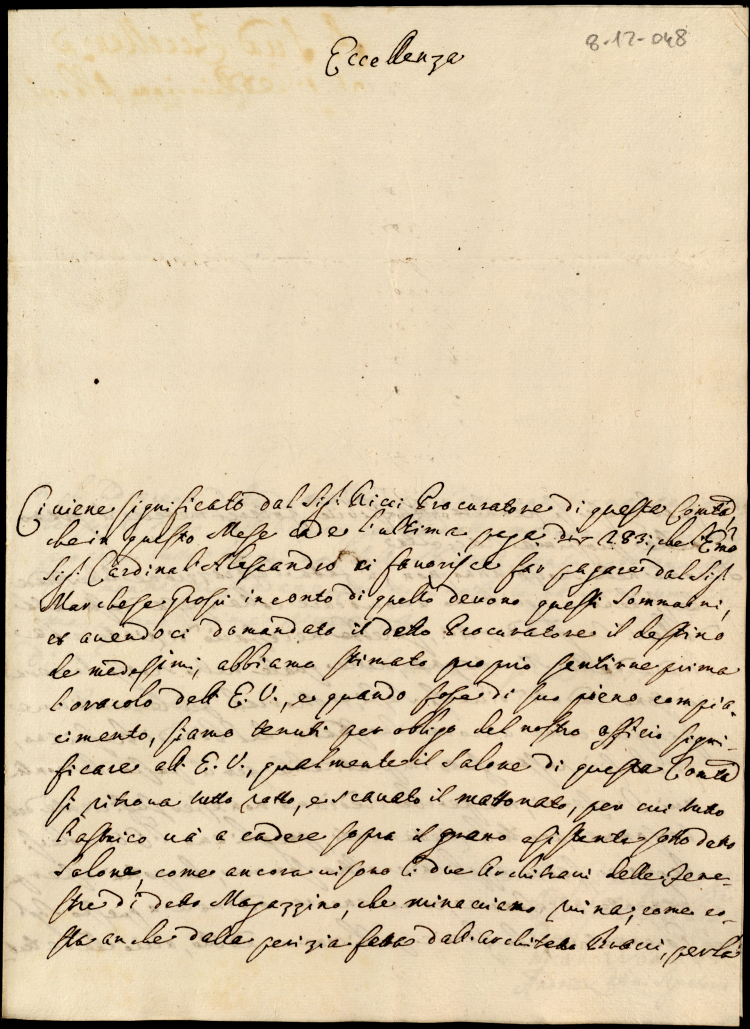 8-12-048
Eccellenza
Ci viene significato dal Sig.r Ricci Procuratore di questa Comtà,
che in questo Mese cade l'ultima paga di 283:, che l'Emo
Sig.r Cardinal Alessandro ci favorisce far pagare dal Sig.r
Marchese Grossi in conto di quello devono questi Sommarini,
et avendoci domandato il detto Procuratore il destino
de medessimi, abbiamo stimato proprio sentirne prima
l'oracolo dell' E. V., e quando fosse di suo pieno compia-
cimento, siamo tenuti per obligo del nostro officio signi-
ficare all' E. V., qualmente il Salone di questa Comtà
si ritrova tutto rotto, e scavato il mattonato, per cui tutto
l'astrico và a cadere sopra il grano esistente sotto detto
Salone, come ancora visono li due Architravi delle Fene-
stre di detto Magazzino, che minacciano ruina; come co-
sta anche dalla perizia fatta dall'Architetto Bracci, per la